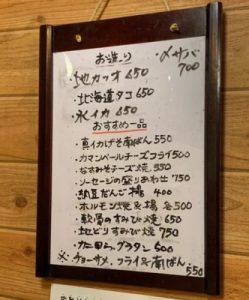 お造り
・〆サバ 700
・地カツオ 650
・北海道タコ 650
・水イカ 650
おすすめ一品
・真イカげそ南ばん 550
・カマンベールチーズフライ 500
・なすみそチーズ焼 550
・ソーセージの盛りあわせ 750
・納豆だんご揚 400
・ホルモン焼&揚 各500
・軟骨のすみび焼 650
・地どりすみび焼 750
・カニ口グラタン 500
※・チョーザメ、フライ&南ばん 550